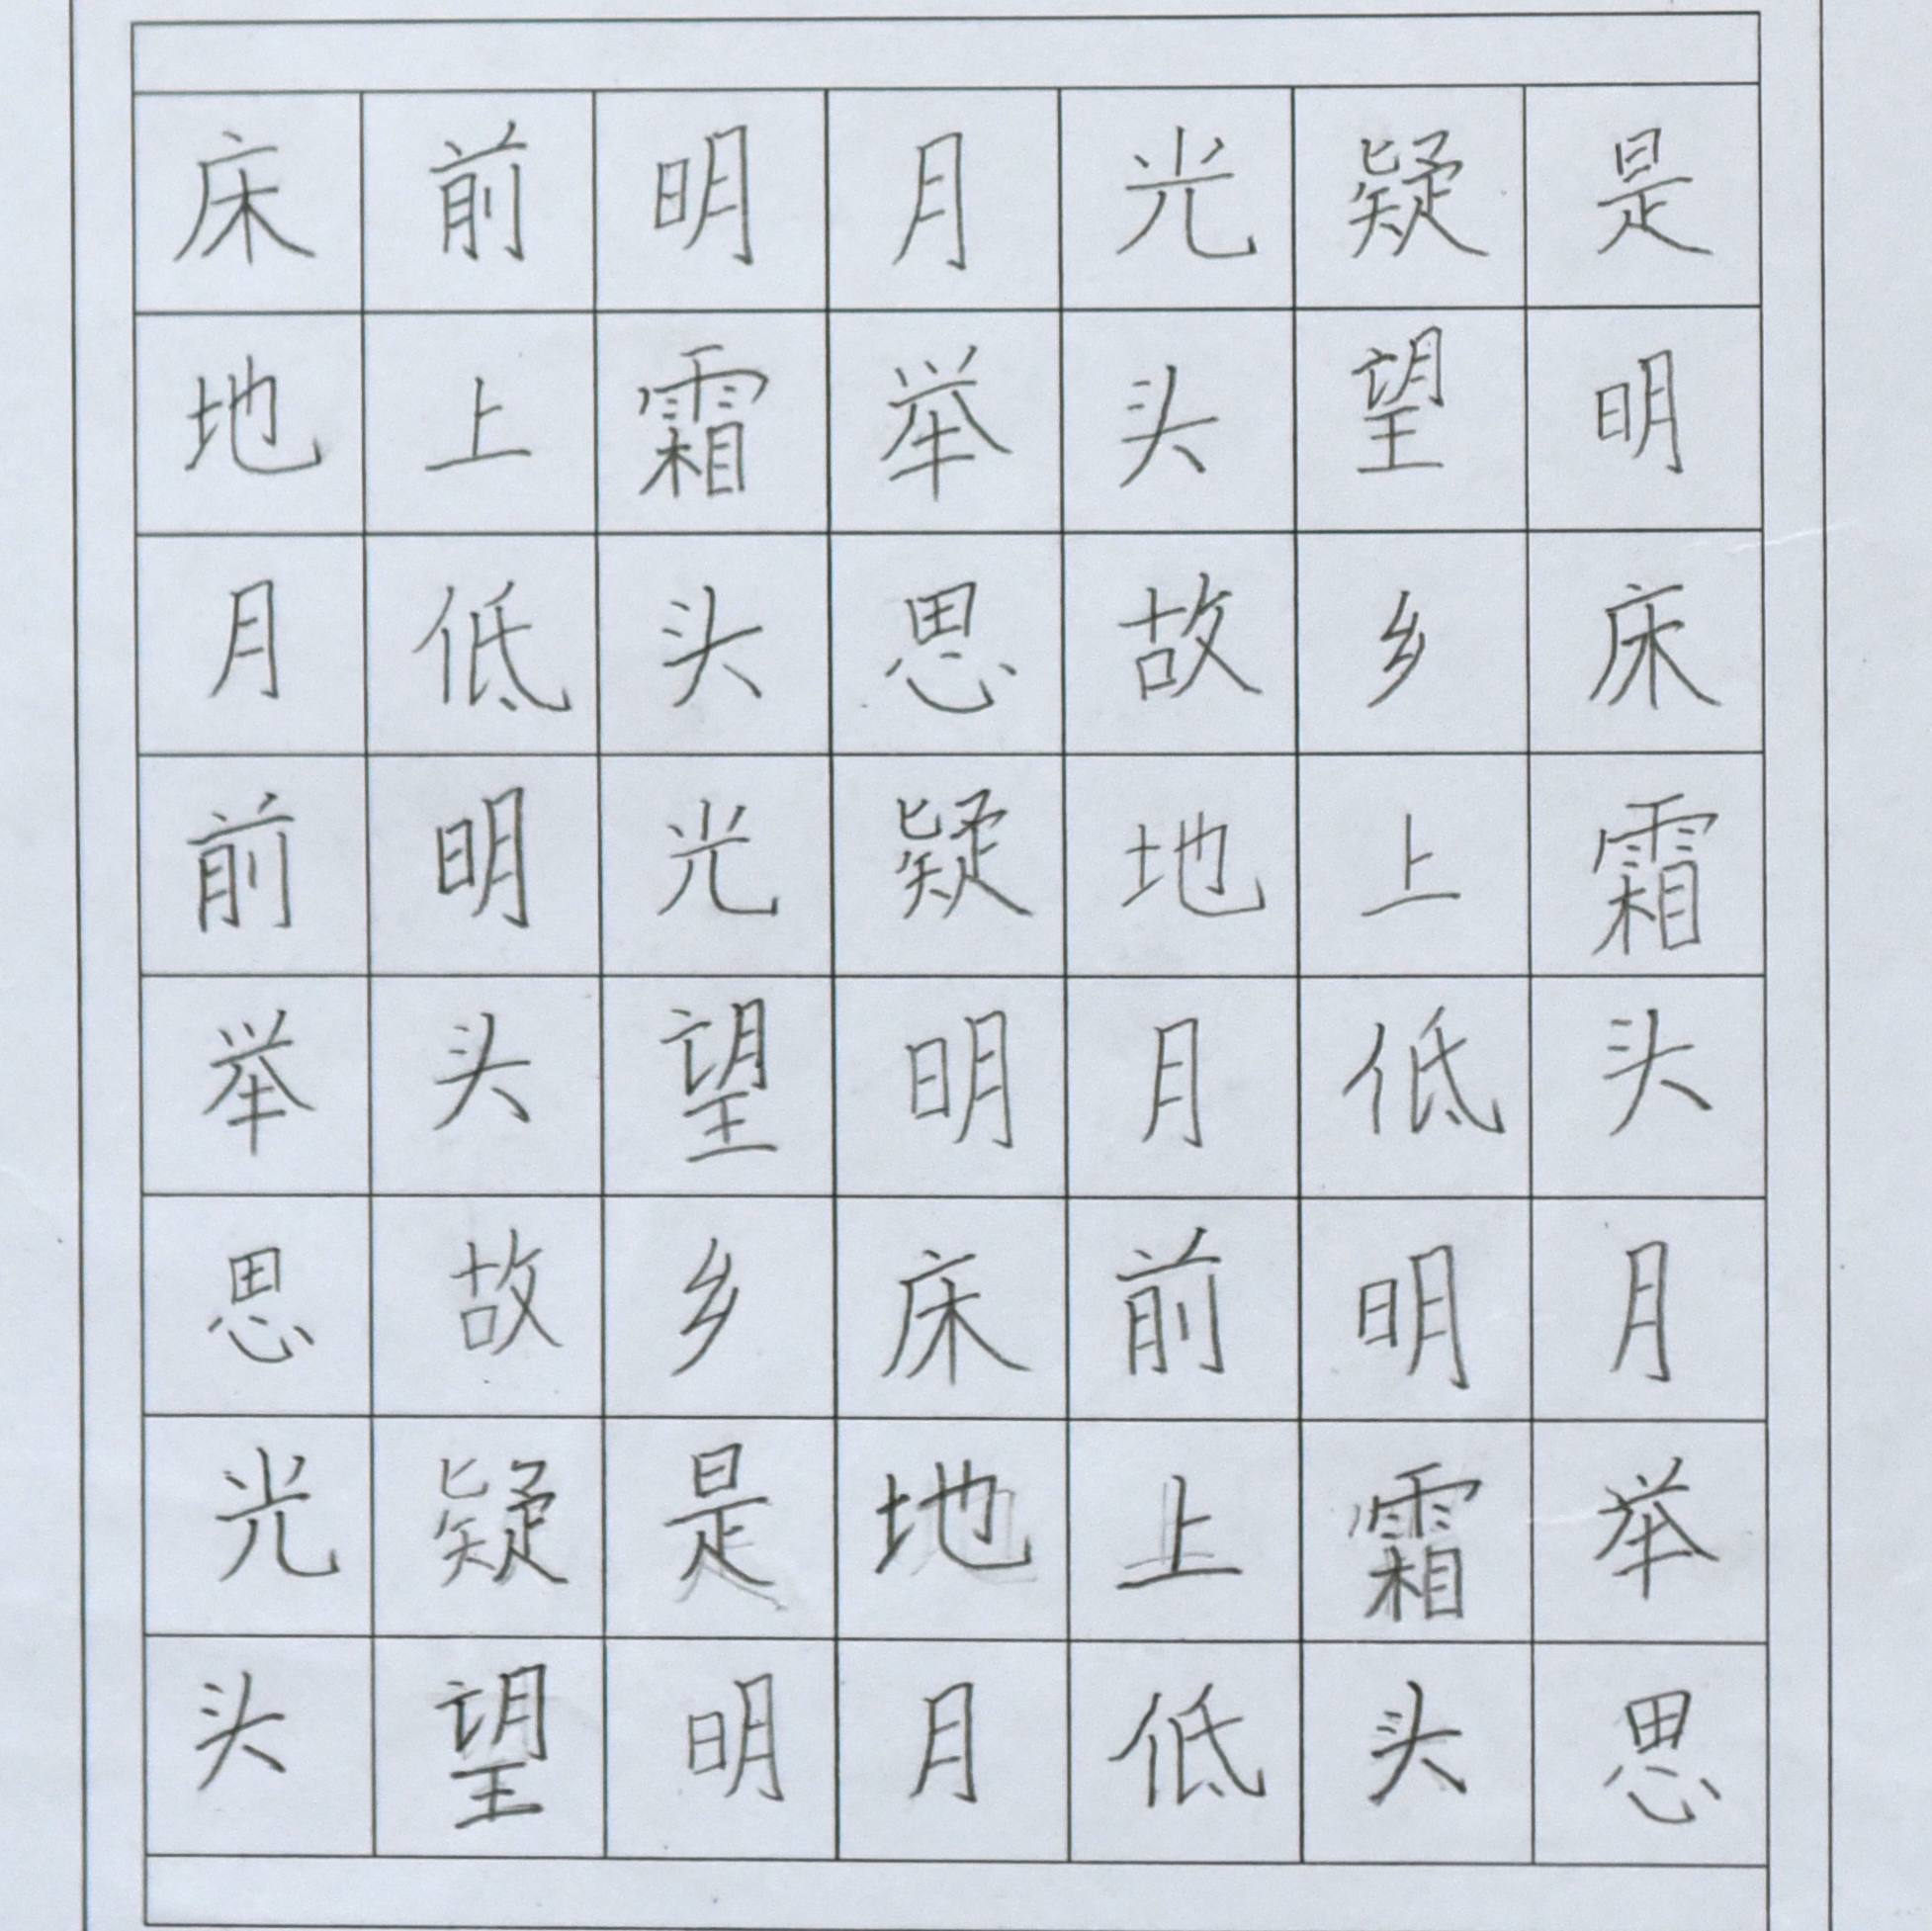 床前明月光疑是
地上霜举头望明
月低头思故乡床
前明光疑地上霜
举头望明月低头
思故乡床前明月
光疑是地上霜举
头望明月低头思